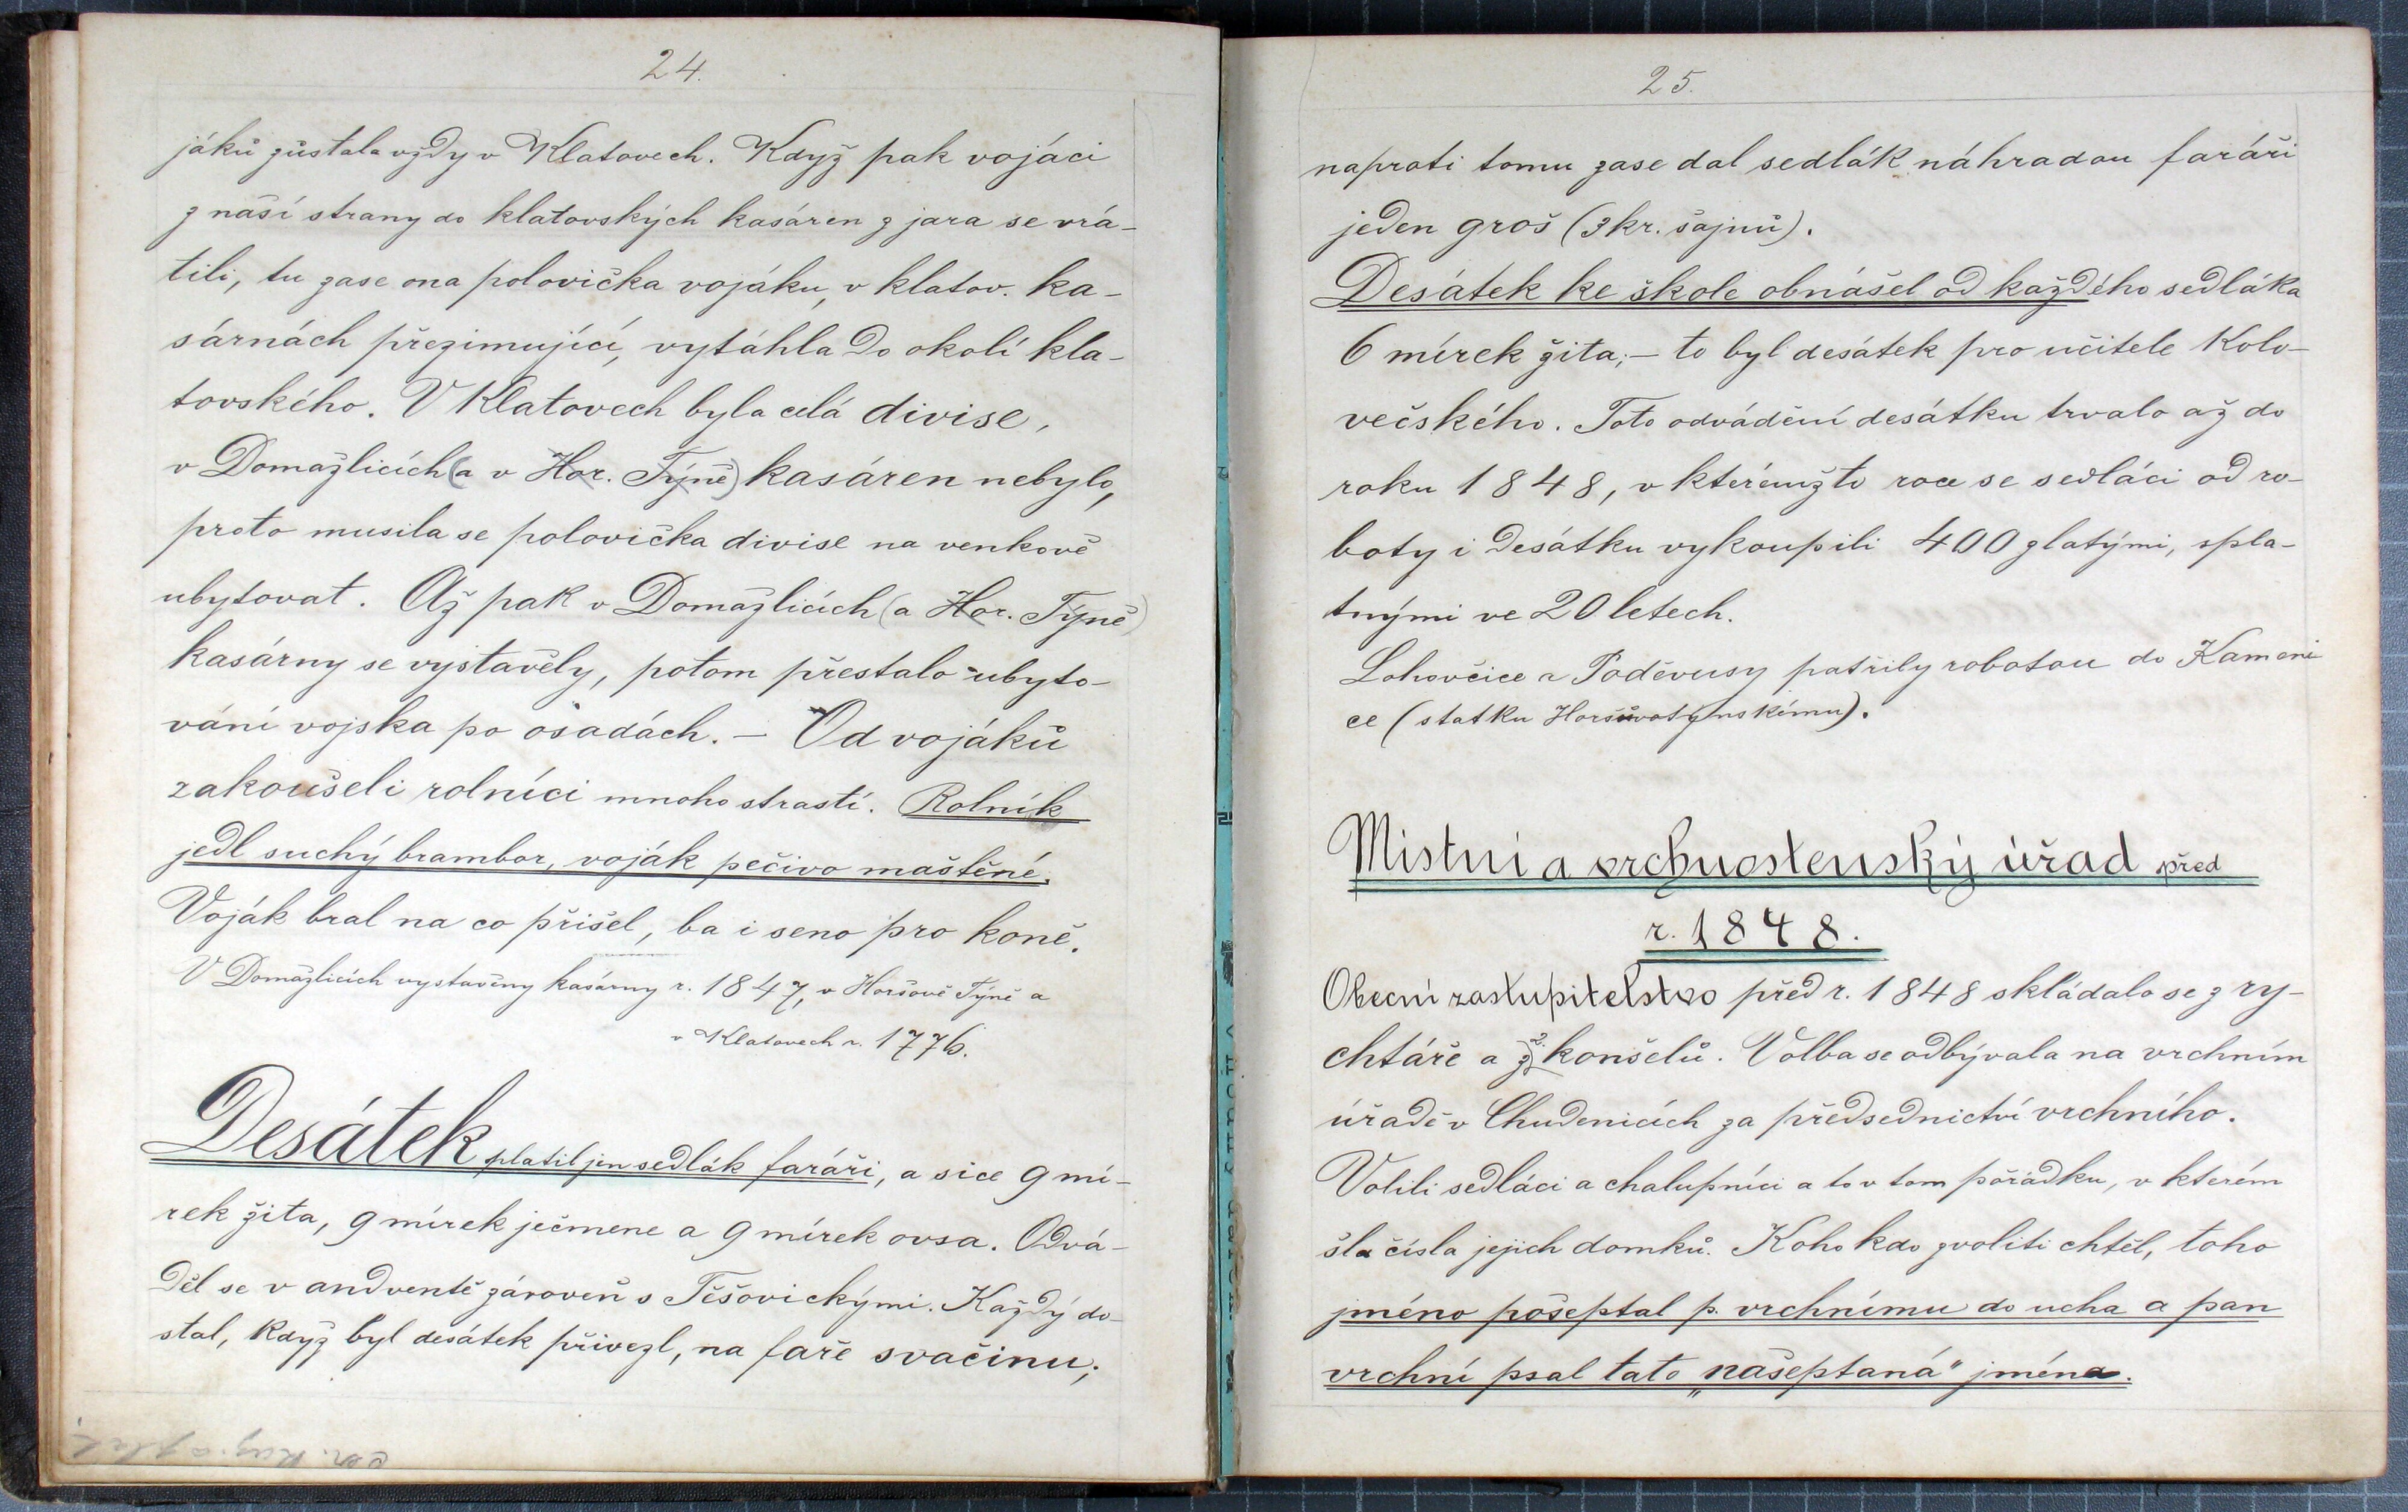 24.
jáků zůstala vždy v Klatovech. Když pak vojáci
z naší strany do klatovských kasáren z jara se vrá-
tili, tu zase ona polovička vojáku, v klatov. ka-
sárnách přezimující, vytáhla do okolí kla-
tovského. V Klatovech byla celá divise,
v Domažlicích (a v Hor. Týně) kasáren nebylo,
proto musila se polovička divise na venkově
ubytovat. Až pak v Domažlicích (a Hor. Týně)
kasárny se vystavěly, potom přestalo ubyto-
vání vojska po osadách. — Od vojáků
zakoušeli rolníci mnoho strastí. Rolník
jedl suchý brambor, voják pečivo maštěné.
Voják bral na co přišel, ba i seno pro koně.
V Domažlicích vystavěny kasárny r. 1847, v Horšově Týně a
v Klatovech r. 1776.
Desátek platil jen sedlák faráři, a sice 9 mí-
rek žita, 9 mírek ječmene a 9 mírek ovsa. Odvá-
děl se v andventě zároveň s Těšovickými. Každý do-
stal, když byl desátek přivezl, na faře svačinu;
25.
naproti tomu zase dal sedlák náhradou faráři
jeden groš (3 kr. šajnů).
Desátek ke škole obnášel od každého sedláka
6 mírek žita; — to byl desátek pro učitele Kolo-
večského. Toto odvádění desátku trvalo až do
roku 1848, v kterémžto roce se sedláci od ro-
boty i desátku vykoupili 400 zlatými, spla-
tnými ve 20 letech.
Lohovčice a Poděvusy patřily robotou do Kameni
ce (statku Horšůvotýnskému).
Mistní a vrchnostenský úřad před
r. 1848.
Obecní zastupitelstvo před r. 1848 skládalo se z ry-
chtáře a z 2. konšelů. Volba se odbývala na vrchním
úřadě v Chudenicích za předsednictví vrchního.
Volili sedláci a chalupníci a to v tom pořádku, v kterém
šla čísla jejich domků. Koho kdo zvoliti chtěl, toho
jméno pošeptal p. vrchnímu do ucha a pan
vrchní psal tato „našeptaná" jména.